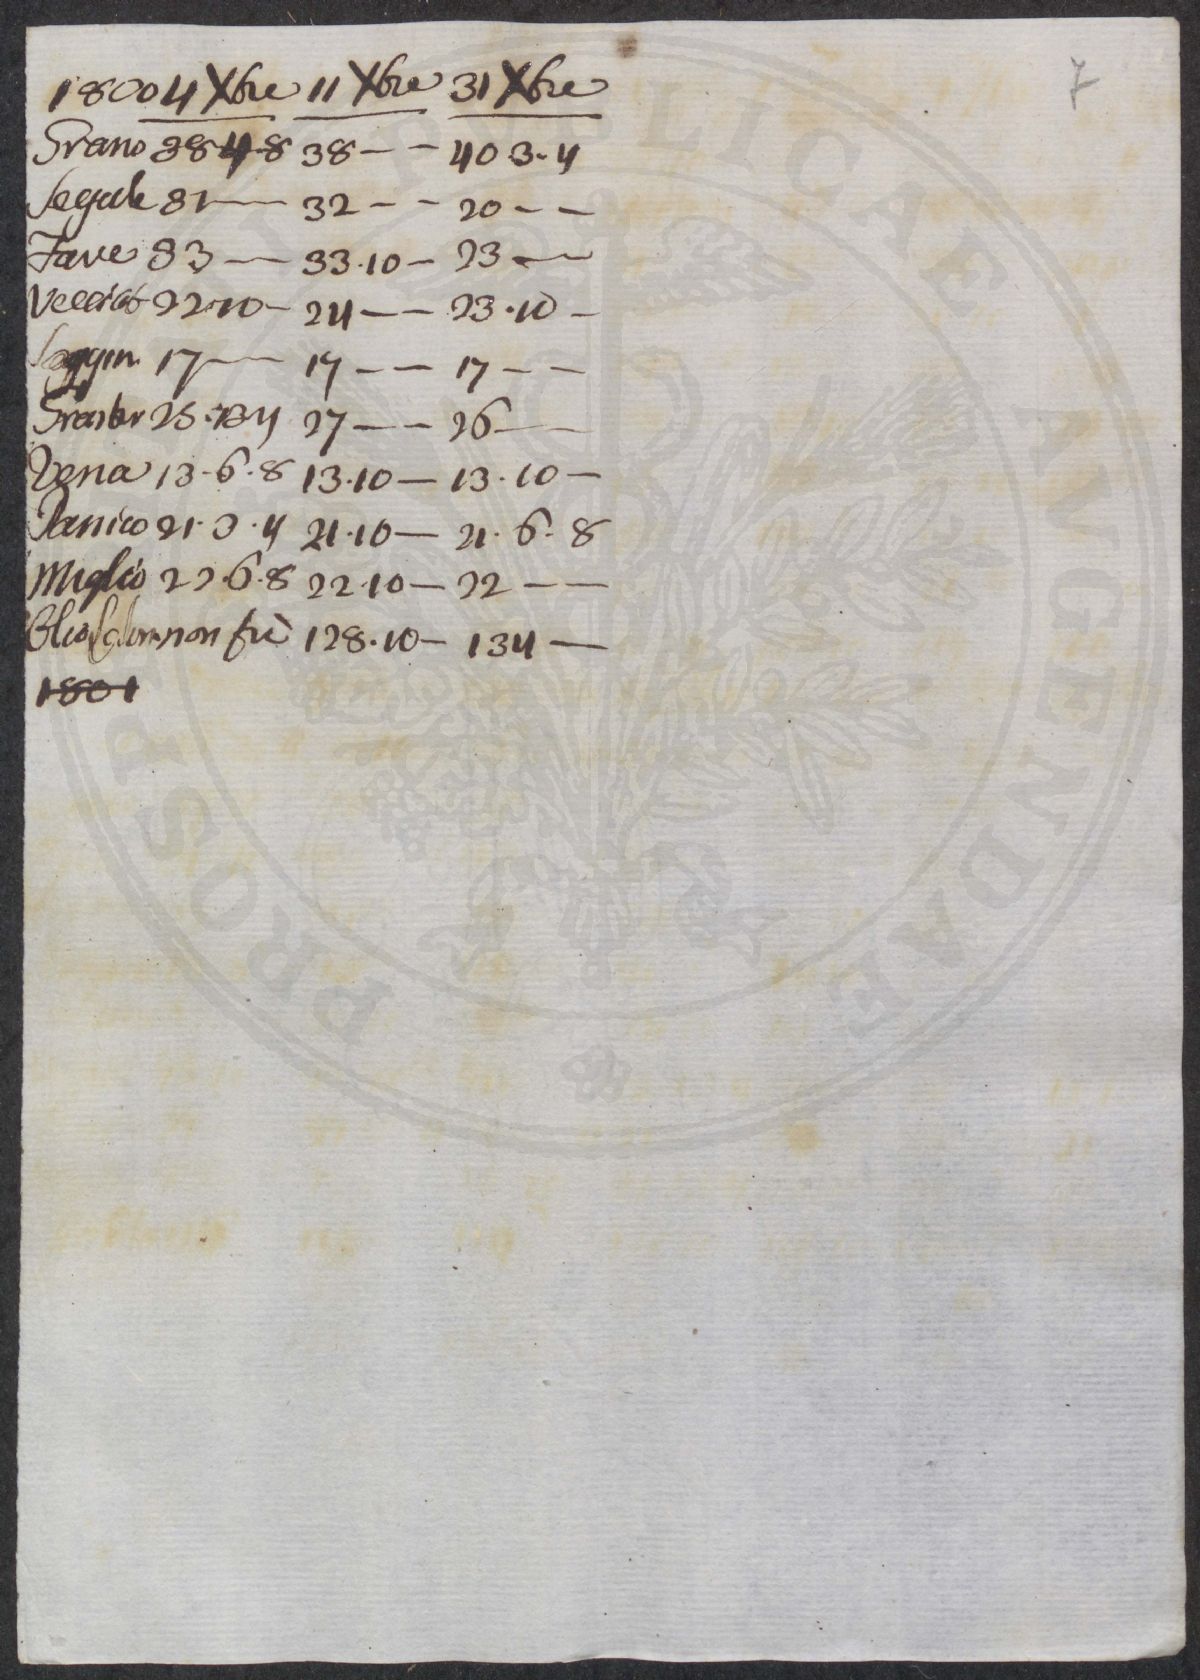 7
1800 4 Xbre 11 Xbre 31 Xbre
Grano 38 4 8 38 — — 40 3. 4
Segale 31 — 32 — — 20 — —
Fave 33 — 33.10 — 23 —
22.10 — 24 — — 23.10 —
Saggin. 17 — 17 — — 17 — —
27 — — 26 —
Vena 13.6.8 13.10 — 13.10 —
Panico 21.3.4 21.10 — 21.6.8
Miglio 22.6.8 22.10 — 22 — —
Olio non fù 128.10 — 134 —
1801
PROSPERITATI PVBLICAE AVGENDAE